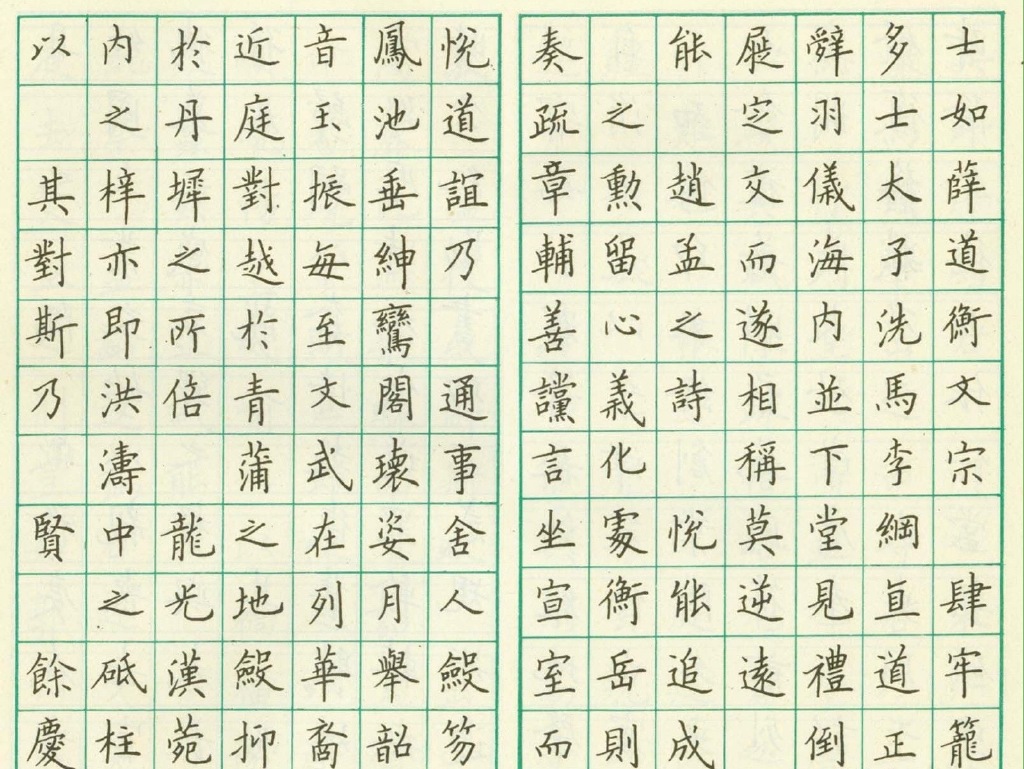 士如薛道衡文宗肆牢籠
多士太子洗馬李綱直道正
辭羽儀海內並下堂見禮倒
屣定交而遂相稱莫逆遠
能趙孟之詩悅能追成
之勳留心義化處衡岳則
奏疏章輔善讜言坐宣室而
悅道誼乃通事舍人笏
鳳池垂紳鸞閣瓌姿月舉韶
音玉振每至文武在列華裔
近庭對越於青蒲之地抑
於丹墀之所倍龍光漢菀
內之梓亦即洪濤中之砥柱
以其對斯乃賢餘慶